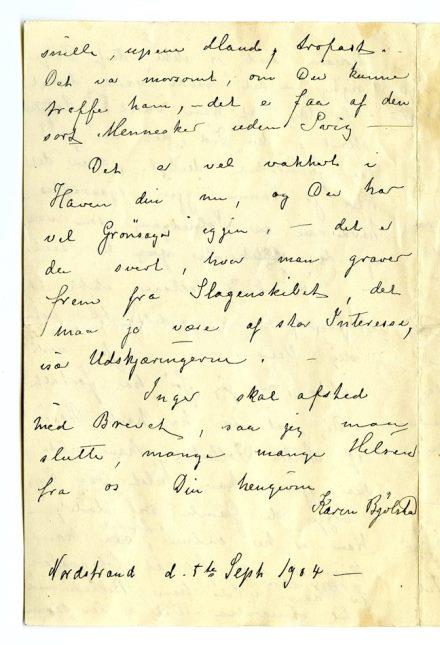 snille, upene Mand, trofast.
Det va morsomt, om Du kunne
træffe ham, – det e faa af den
sort Mennesker uden Svig –
Det er vel vakkert i
Haven din nu, og Du har
vel Grönsager igjen, – det e
da svert, hva man graver
frem fra Slagenskibet, det
maa jo være af stor Interesse,
især Udskjæringerne. –
Inger skal afsted
med Brevet, saa jeg maa
slutte, mange mange Hilsen
fra os Din hengivne
Karen Bjölstad
Nordstrand d. 5te Septb 1904 –